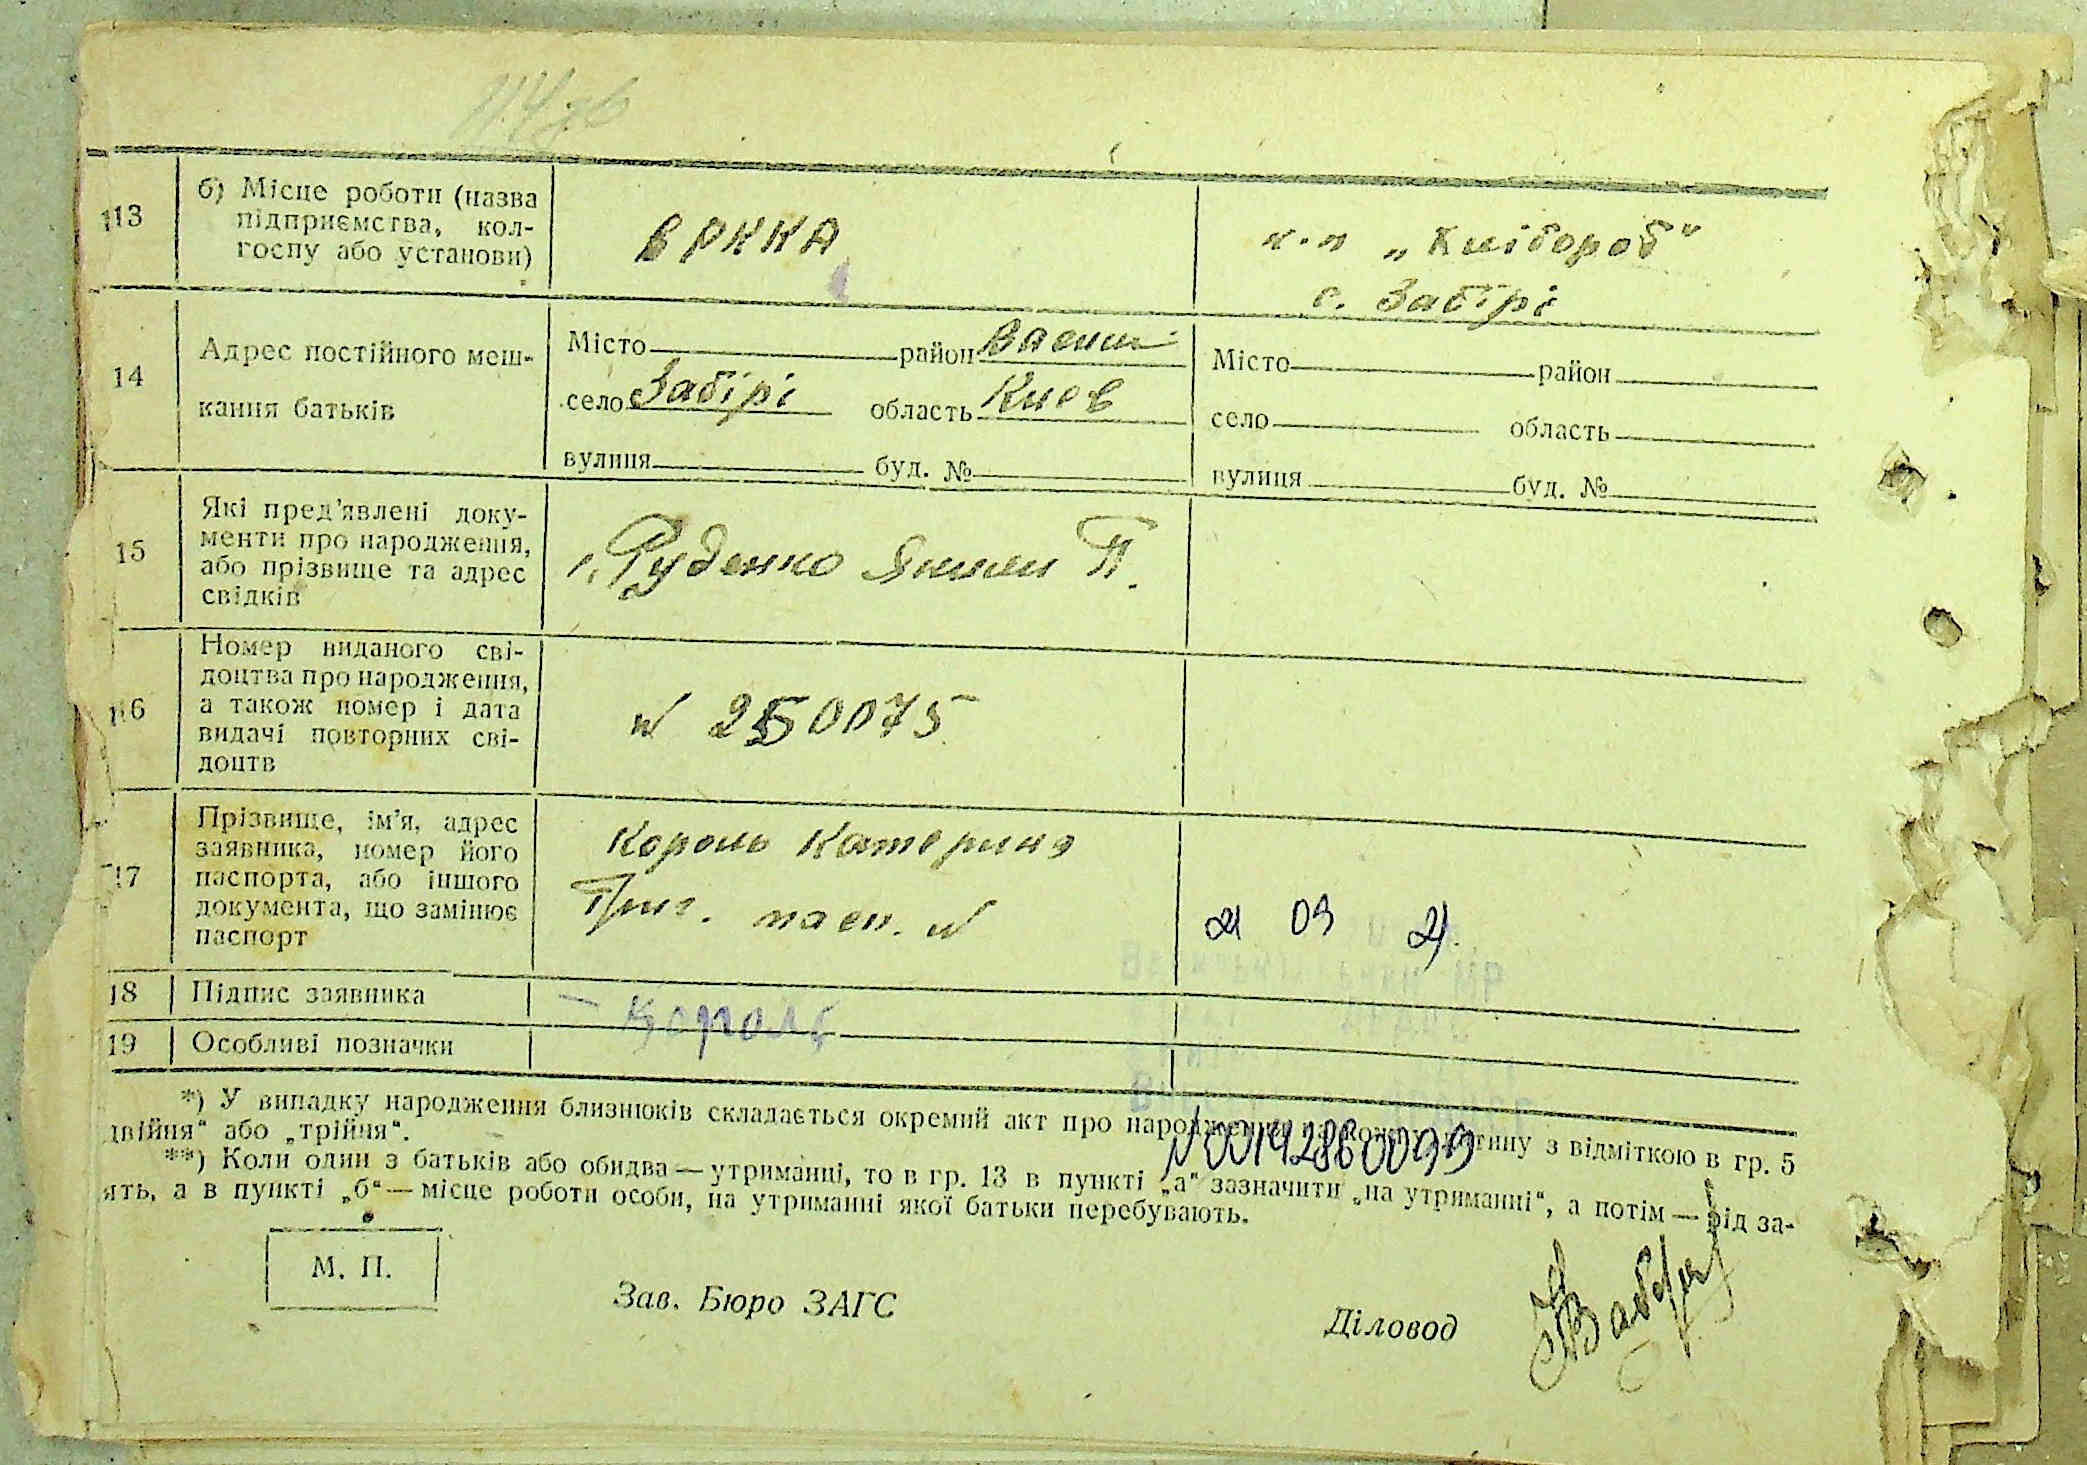 114зв
13
б) Місце роботи (назва
підприємства, кол-
госпу або установи)
в РККА
к-п „Хлібороб"
с. Забірі
14
Адрес постійного меш-
кання батьків
Місто район Васильк
село Забірі область Киев
вулиця буд. №
Місто район
село область
вулиця буд. №
15
Які пред'явлені доку-
менти про народження,
або прізвище та адрес
свідків
Руденко П.
16
Номер виданого сві-
доцтва про народження,
а також номер і дата
видачі повторних сві-
доцтв
№ 250075
17
Прізвище, ім'я, адрес
заявника, номер його
паспорта, або іншого
документа, що замінює
паспорт
Король Катерина
Григ. пасп. №
21 09 21
18
Підпис заявника
Король
19
Особливі позначки
*) У випадку народження близнюків складається окремий акт про народження на кожну дитину з відміткою в гр. 5
двійня" або „трійня".
N 00142860099
**) Коли один з батьків або обидва — утриманці, то в гр. 13 в пункті „а" зазначити „на утриманні", а потім — рід за-
ять, а в пункті „б" — місце роботи особи, на утриманні якої батьки перебувають.
М. П.
Зав. Бюро ЗАГС
Діловод